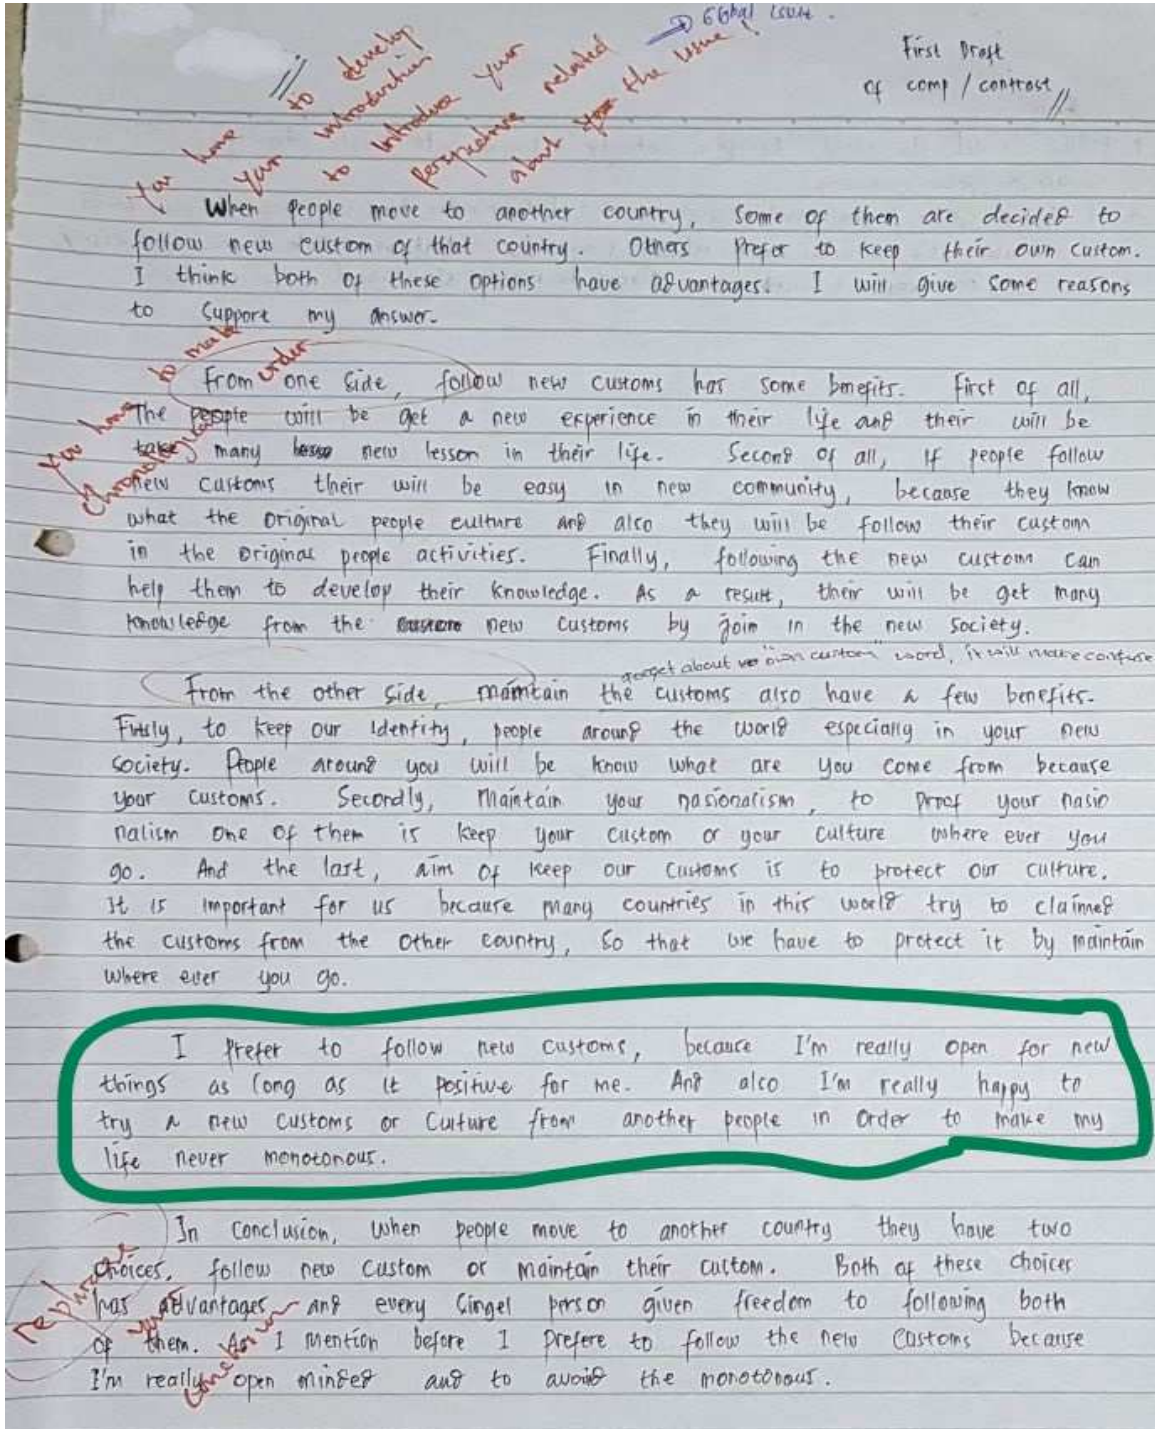 → Global issue.
First Draft
of comp / contrast //
//
You have to develop
your introduction
to introduce your
perspective related
about the issue!
When people move to another country, some of them are decided to
follow new custom of that country. Others prefer to keep their own custom.
I think both of these options have advantages. I will give some reasons
to support my answer.
You have to make
chronological order
From one side, follow new customs has some benefits. First of all,
The people will be get a new experience in their life and their will be
take many new lesson in their life. Second of all, if people follow
new customs their will be easy in new community, because they know
what the original people culture and also they will be follow their custom
in the original people activities. Finally, following the new custom can
help them to develop their knowledge. As a result, their will be get many
knowledge from the new customs by join in the new society.
forget about "own custom" word, it will make confuse
From the other side, maintain the customs also have a few benefits.
Firstly, to keep our identity, people around the world especially in your new
society. People around you will be know what are you come from because
your customs. Secondly, Maintain your nasionalism, to proof your nasio
nalism one of them is keep your custom or your culture where ever you
go. And the last, aim of keep our customs is to protect our culture.
It is important for us because many countries in this world try to claimed
the customs from the other country, so that we have to protect it by maintain
where ever you go.
I prefer to follow new customs, because I'm really open for new
things as long as it positive for me. And also I'm really happy to
try a new customs or culture from another people in order to make my
life never monotonous.
rephrase
your
conclusion
In conclusion, when people move to another country they have two
choices, follow new custom or maintain their custom. Both of these choices
has advantages and every singel person given freedom to following both
of them. As I mention before I prefere to follow the new customs because
I'm really open minded and to avoid the monotonous.